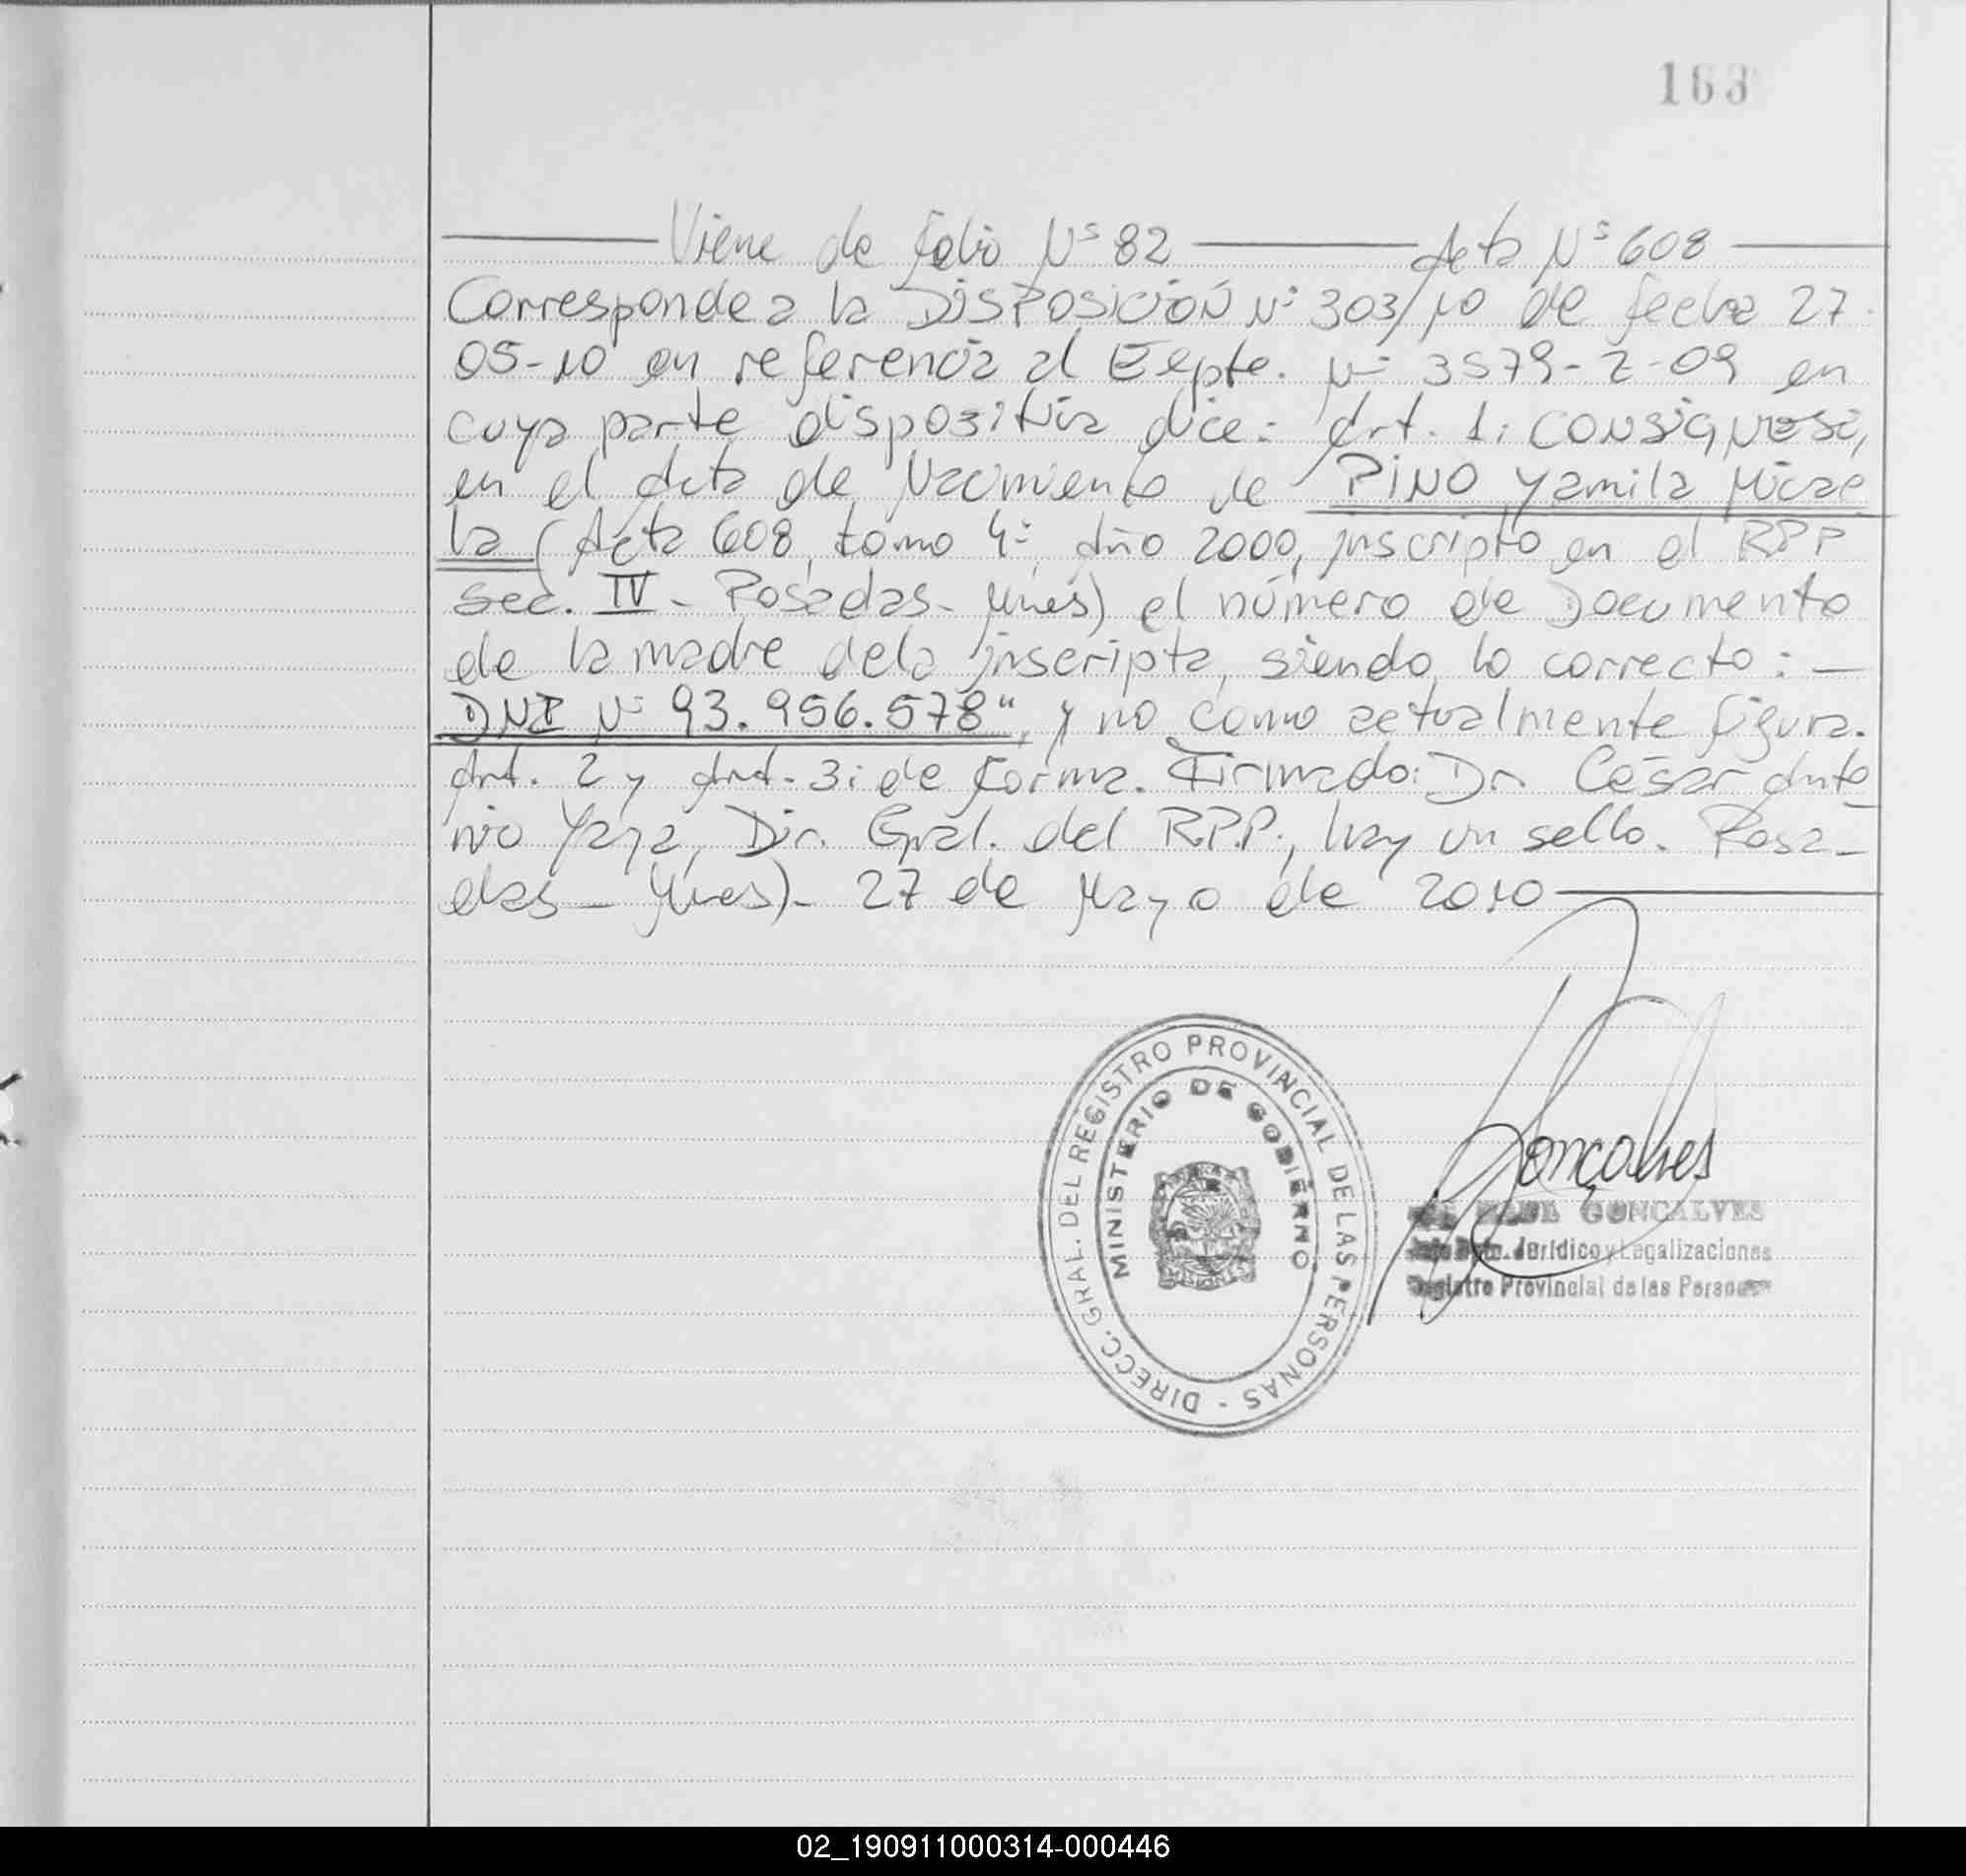 163
Viene de folio Nº 82 Acta Nº 608
Corresponde a la DISPOSICIÓN Nº 303/10 de fecha 27-
05-10 en referencia al Expte. Nº 3579-2-09 en
cuya parte dispositiva dice: Art. 1: CONSIGNESE,
en el Acta de Nacimiento de PINO Yamila Micae
la (Acta 608, tomo 4º, Año 2000, inscripto en el RPP
Sec. IV - Posadas - Mnes) el número de Documento
de la madre dela inscripta, siendo lo correcto: —
DNI Nº 93.956.578", y no como actualmente figura.
Art. 2 y Art. 3: de forma. Firmado: Dr. César Anto
nio Yaya, Dir. Gral. del R.P.P., hay un sello. Posa-
das - Mnes) - 27 de Mayo de 2010
DIRECC. GRAL. DEL REGISTRO PROVINCIAL DE LAS PERSONAS -
MINISTERIO DE GOBIERNO
MISIONES
Gonçalves
GONCALVES
Jefe Dpto. Jurídico y Legalizaciones
Registro Provincial de las Personas
02_190911000314-000446